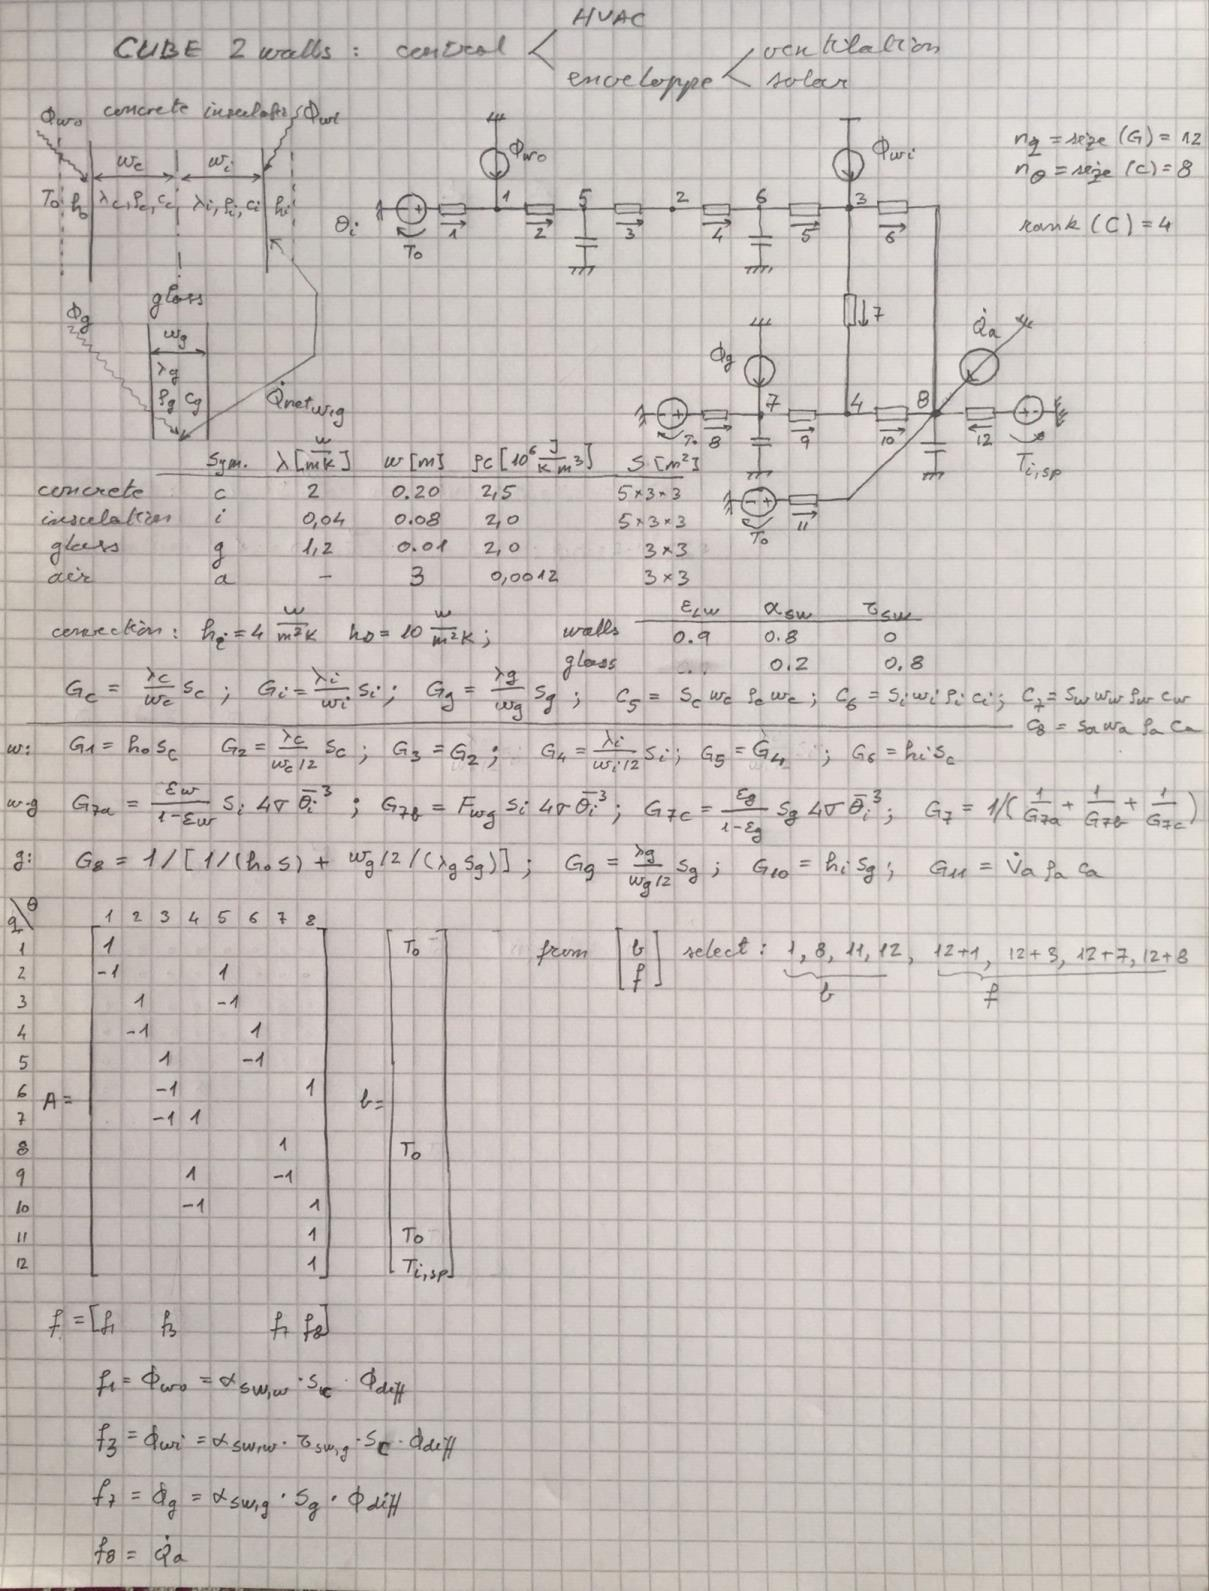 HVAC
CUBE 2 walls : control < enveloppe < ventilation
solar
Φwo concrete insulatio Φwi
wc wi
To ho λc, ρc, cc λi, ρi, ci hi
glass
Φg
wg
λg
ρg cg
Q̇net w,g
Φwo Φwi
θi To 1 1 2 5 3 2 4 6 5 3 6
7
Φg Q̇a
To 8 7 9 4 10 8 12 Ti,sp
To 11
nq = size (G) = 12
nθ = size (C) = 8
rank (C) = 4
Sym. λ [W/mK] w [m] ρc [10⁶ J/K m³] S [m²]
concrete c 2 0.20 2,5 5×3×3
insulation i 0,04 0.08 2,0 5×3×3
glass g 1,2 0.01 2,0 3×3
air a – 3 0,0012 3×3
εLW αSW τSW
walls 0.9 0.8 0
glass 0.2 0.8
convection : hi = 4 W/m²K ho = 10 W/m²K ;
Gc = λc/wc Sc ; Gi = λi/wi Si ; Gg = λg/wg Sg ; C5 = Sc wc ρc wc ; C6 = Si wi ρi ci ; C7 = Sw ww ρw cw
C8 = Sa wa ρa ca
w: G1 = ho Sc G2 = λc/wc/2 Sc ; G3 = G2 ; G4 = λi/wi/2 Si ; G5 = G4 ; G6 = hi Sc
w-g G7a = εw/1-εw Si 4σ θ̄i³ ; G7b = Fwg Si 4σ θ̄i³ ; G7c = εg/1-εg Sg 4σ θ̄i³ ; G7 = 1/(1/G7a + 1/G7b + 1/G7c)
g: G8 = 1/[1/(ho S) + wg/2/(λg Sg)] ; G9 = λg/wg/2 Sg ; G10 = hi Sg ; G11 = V̇a ρa ca
q\θ 1 2 3 4 5 6 7 8
1 1 To
2 -1 1
3 1 -1
4 -1 1
5 1 -1
6 -1 1
A = b =
7 -1 1
8 1 To
9 1 -1
10 -1 1
11 1 To
12 1 Ti,sp
from [b f] select : 1, 8, 11, 12, 12+1, 12+3, 12+7, 12+8
b f
f = [f1 f3 f7 f8]
f1 = Φwo = αSW,w · Sc · Φdiff
f3 = Φwi = αSW,w · τSW,g · Sc · Φdiff
f7 = Φg = αSW,g · Sg · Φdiff
f8 = Q̇a